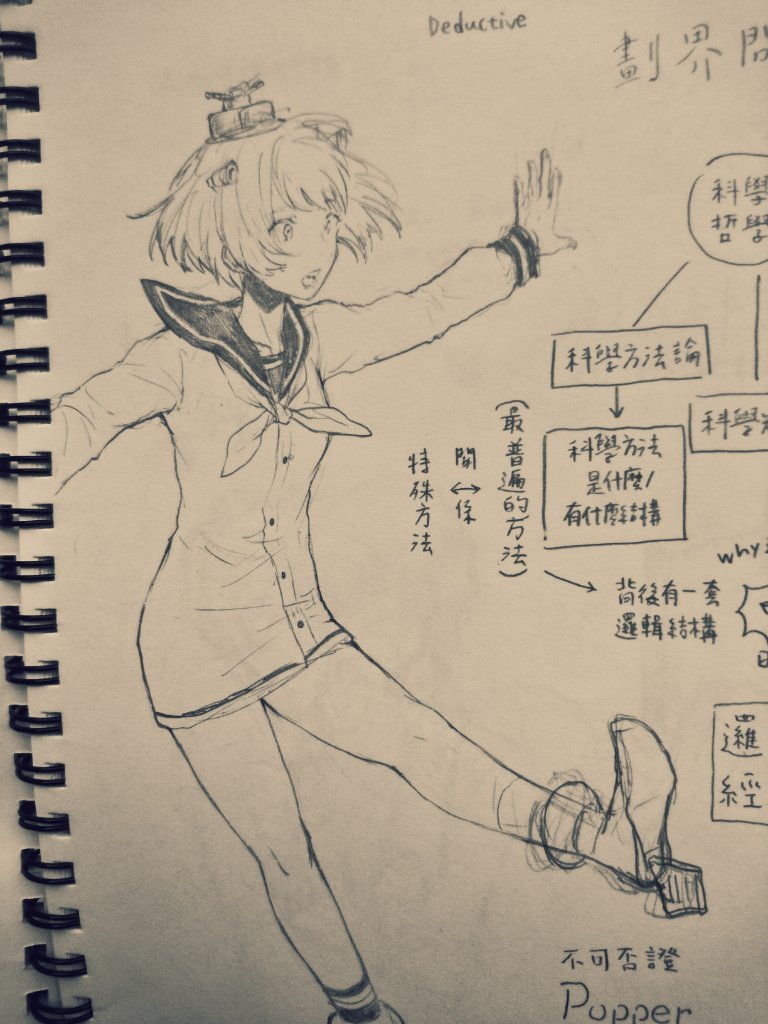 Deductive
劃界問
科學
哲學
科學方法論
科學
科學方法
是什麼/
有什麼結構
(最普遍的方法)
關係
↔
特殊方法
why
背後有一套
邏輯結構
邏
經
不可否證
Popper